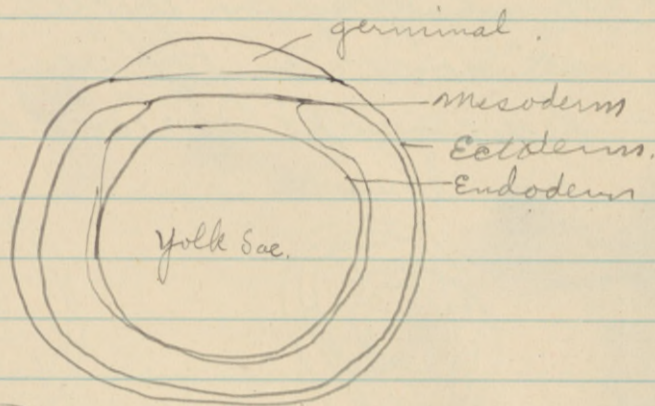 germinal.
Mesoderm
Ectoderm.
Endoderm
Yolk Sac.